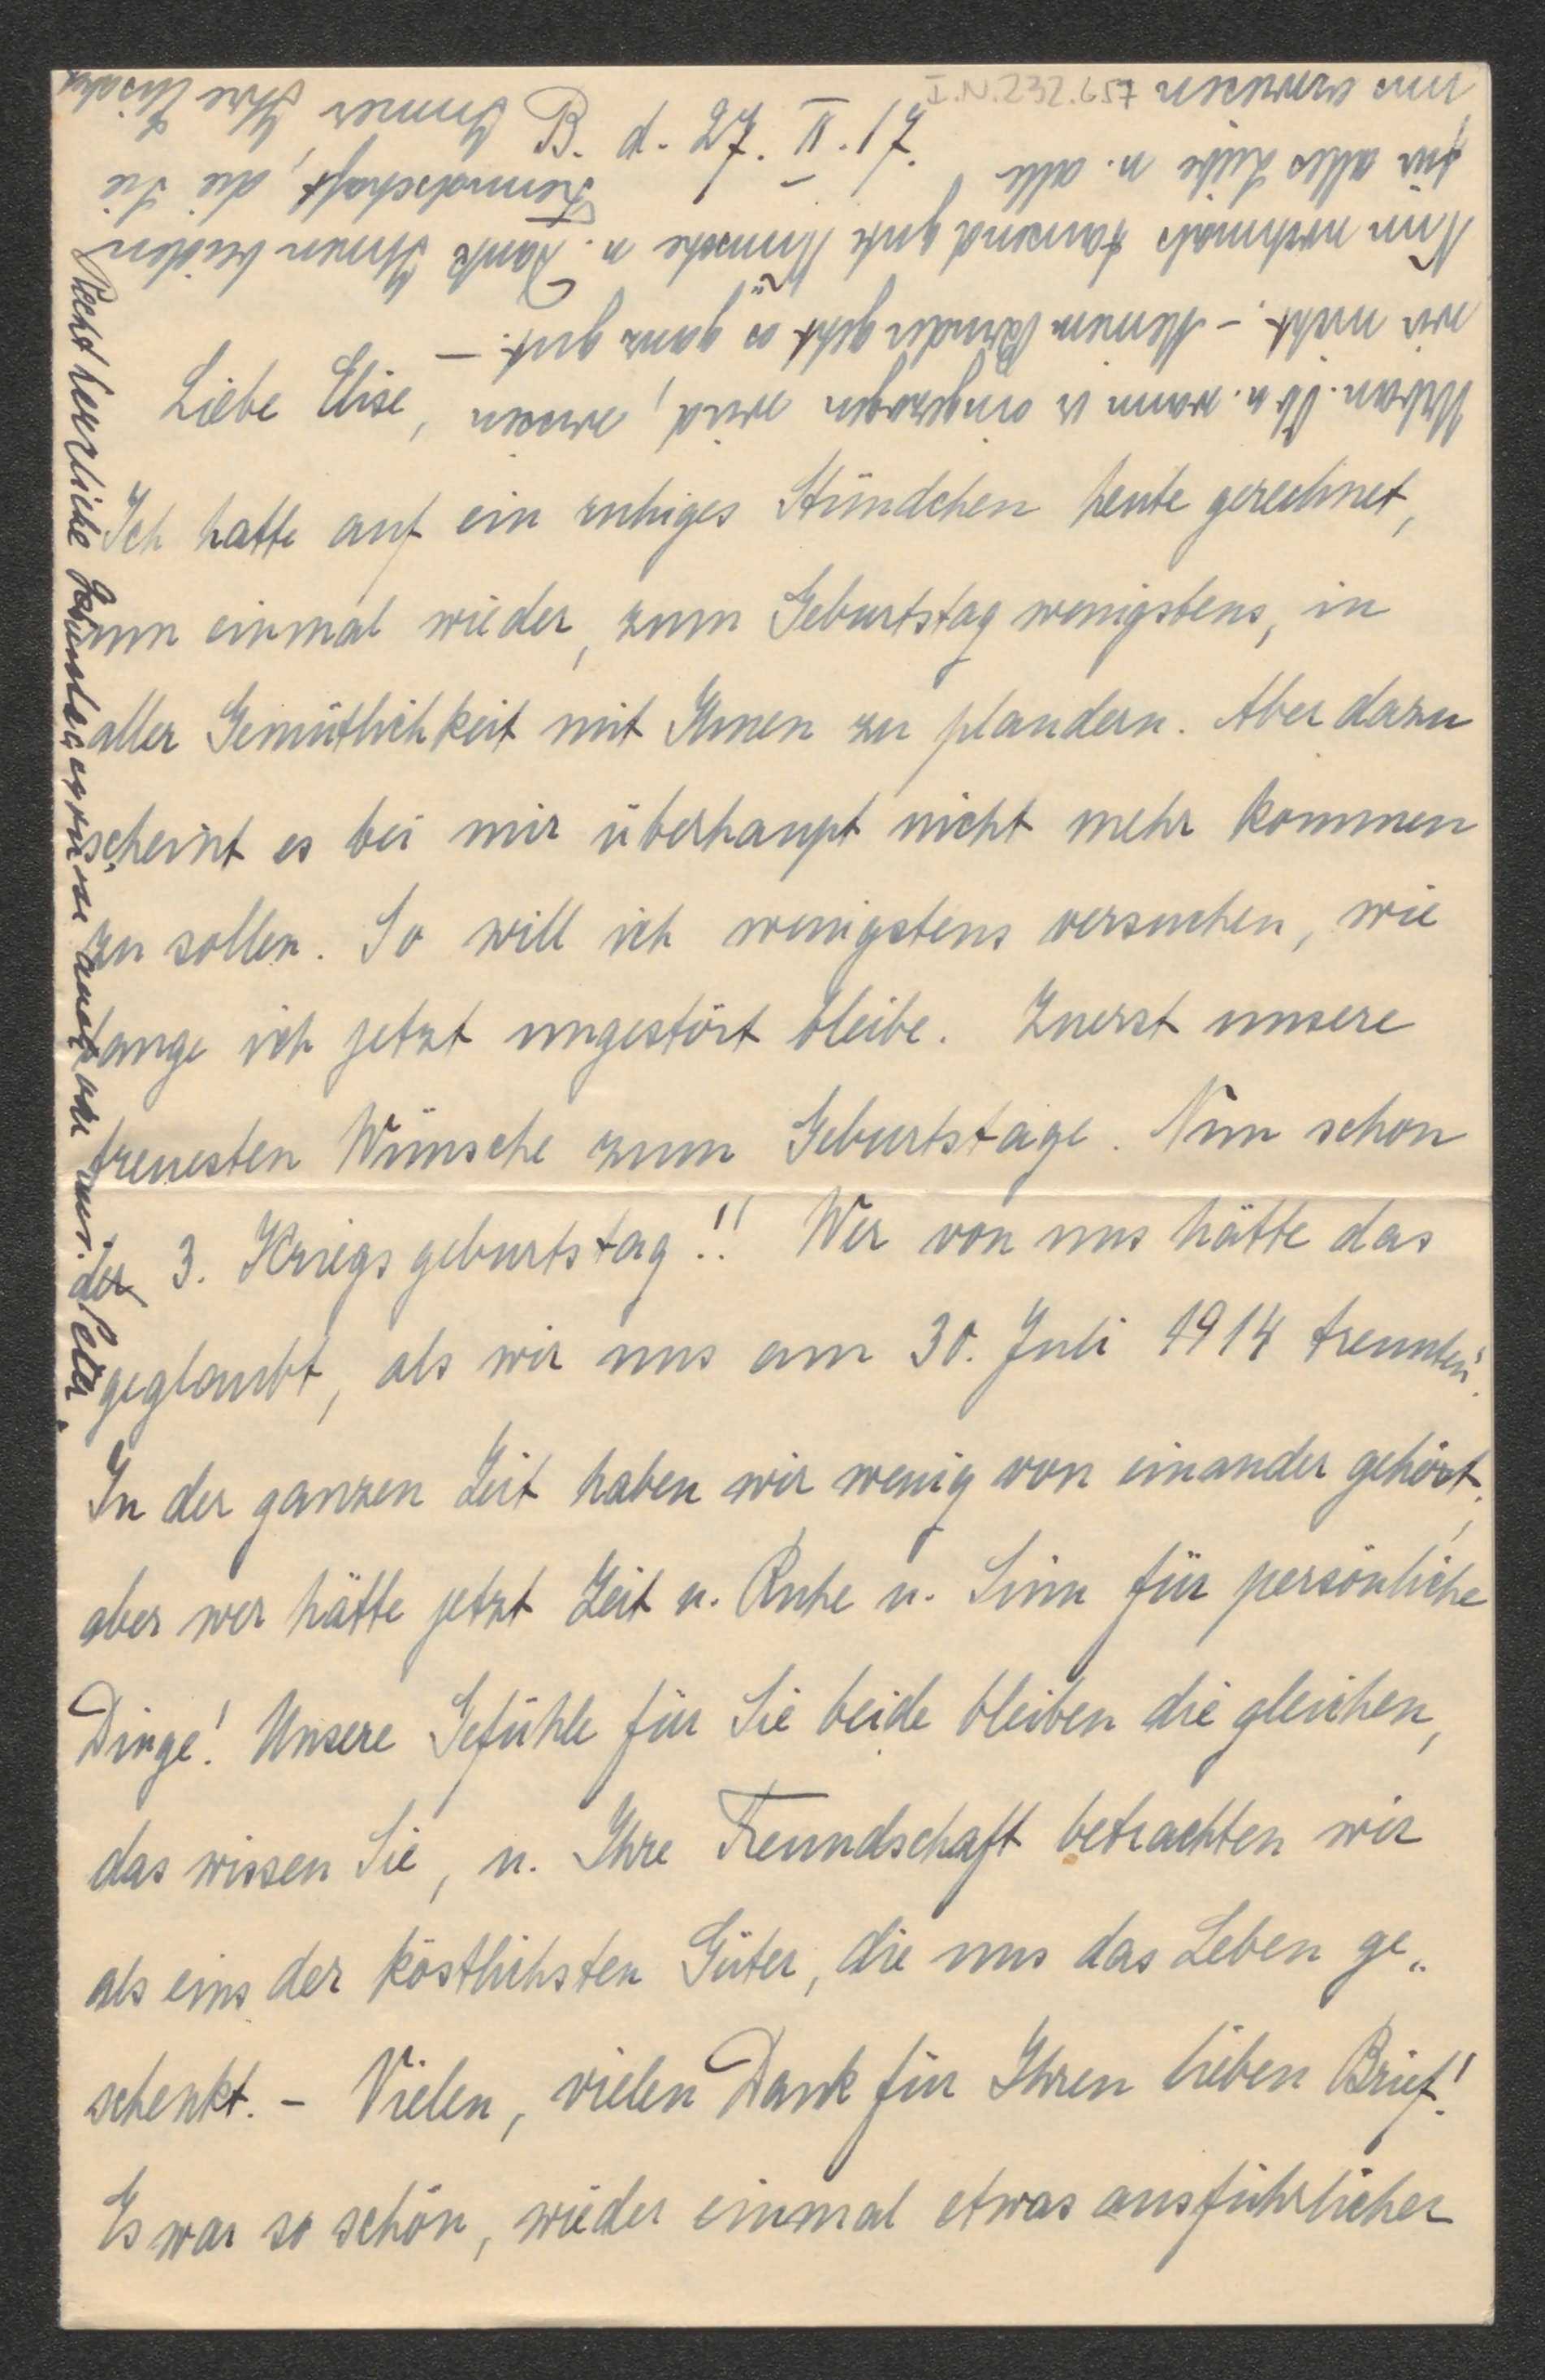 I.N.232.657
B. d. 27. II. 17.
Liebe Elise,
Ich hatte auf ein ruhiges Stündchen heute gerechnet,
um einmal wieder, zum Geburtstag wenigstens, in
aller Gemütlichkeit mit Ihnen zu plaudern. Aber dazu
scheint es bei mir überhaupt nicht mehr kommen
zu sollen. So will ich wenigstens versuchen, wie
lange ich jetzt ungestört bleibe. Zuerst unsere
treuesten Wünsche zum Geburtstage. Nun schon
der 3. Kriegsgeburtstag!! Wer von uns hätte das
geglaubt, als wir uns am 30. Juli 1914 trennten.
In der ganzen Zeit haben wir wenig von einander gehört,
aber wer hätte jetzt Zeit u. Ruhe u. Sinn für persönliche
Dinge! Unsere Gefühle für Sie beide bleiben die gleichen,
das wissen Sie, u. Ihre Freundschaft betrachten wir
als eins der köstlichsten Güter, die uns das Leben ge„
schenkt. – Vielen, vielen Dank für Ihren lieben Brief!
Es war so schön, wieder einmal etwas ausführlicher
Urban. Ob u. wann er eingezogen wird, wissen
wir nicht. – Meinem Bruder geht es ganz gut. –
Nun nochmals tausend gute Wünsche u. Dank Ihnen beiden
für alles Liebe u. alle Freundschaft, die Sie
uns erwiesen Immer Ihre
Recht herzliche Geburtstagsgrüsse auch von Peter.